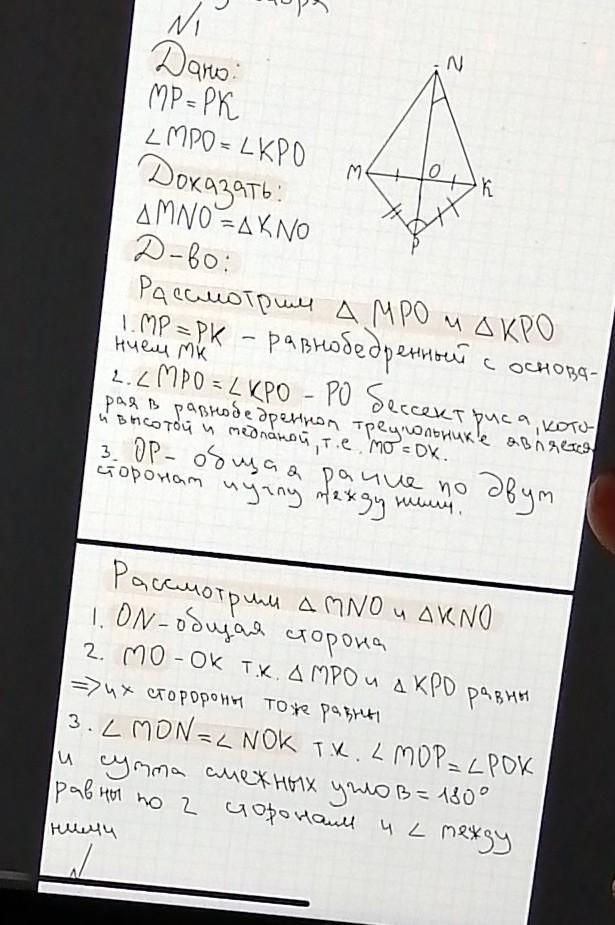 N1
Дано:
MP = PK
∠MPO = ∠KPO
Доказать:
△MNO = △KNO
Д-во:
N
M
O
K
P
Рассмотрим △ MPO и △KPO
1. MP = PK - равнобедренный с основа-
нием MK
2. ∠MPO = ∠KPO - PO бессектриса, кото-
рая в равнобедренном треугольнике является
и высотой и медианой, т.е. MO = OK.
3. OP - общая по двум
сторонам и углу между ними.
Рассмотрим △ MNO и △KNO
1. ON - общая сторона
2. MO - OK т.к. △ MPO и △ KPO равны
=> их сторороны тоже равны
3. ∠ MON = ∠ NOK т.к. ∠ MOP = ∠POK
и сумма смежных углов = 180°
равны по 2 сторонам и ∠ между
ними
N